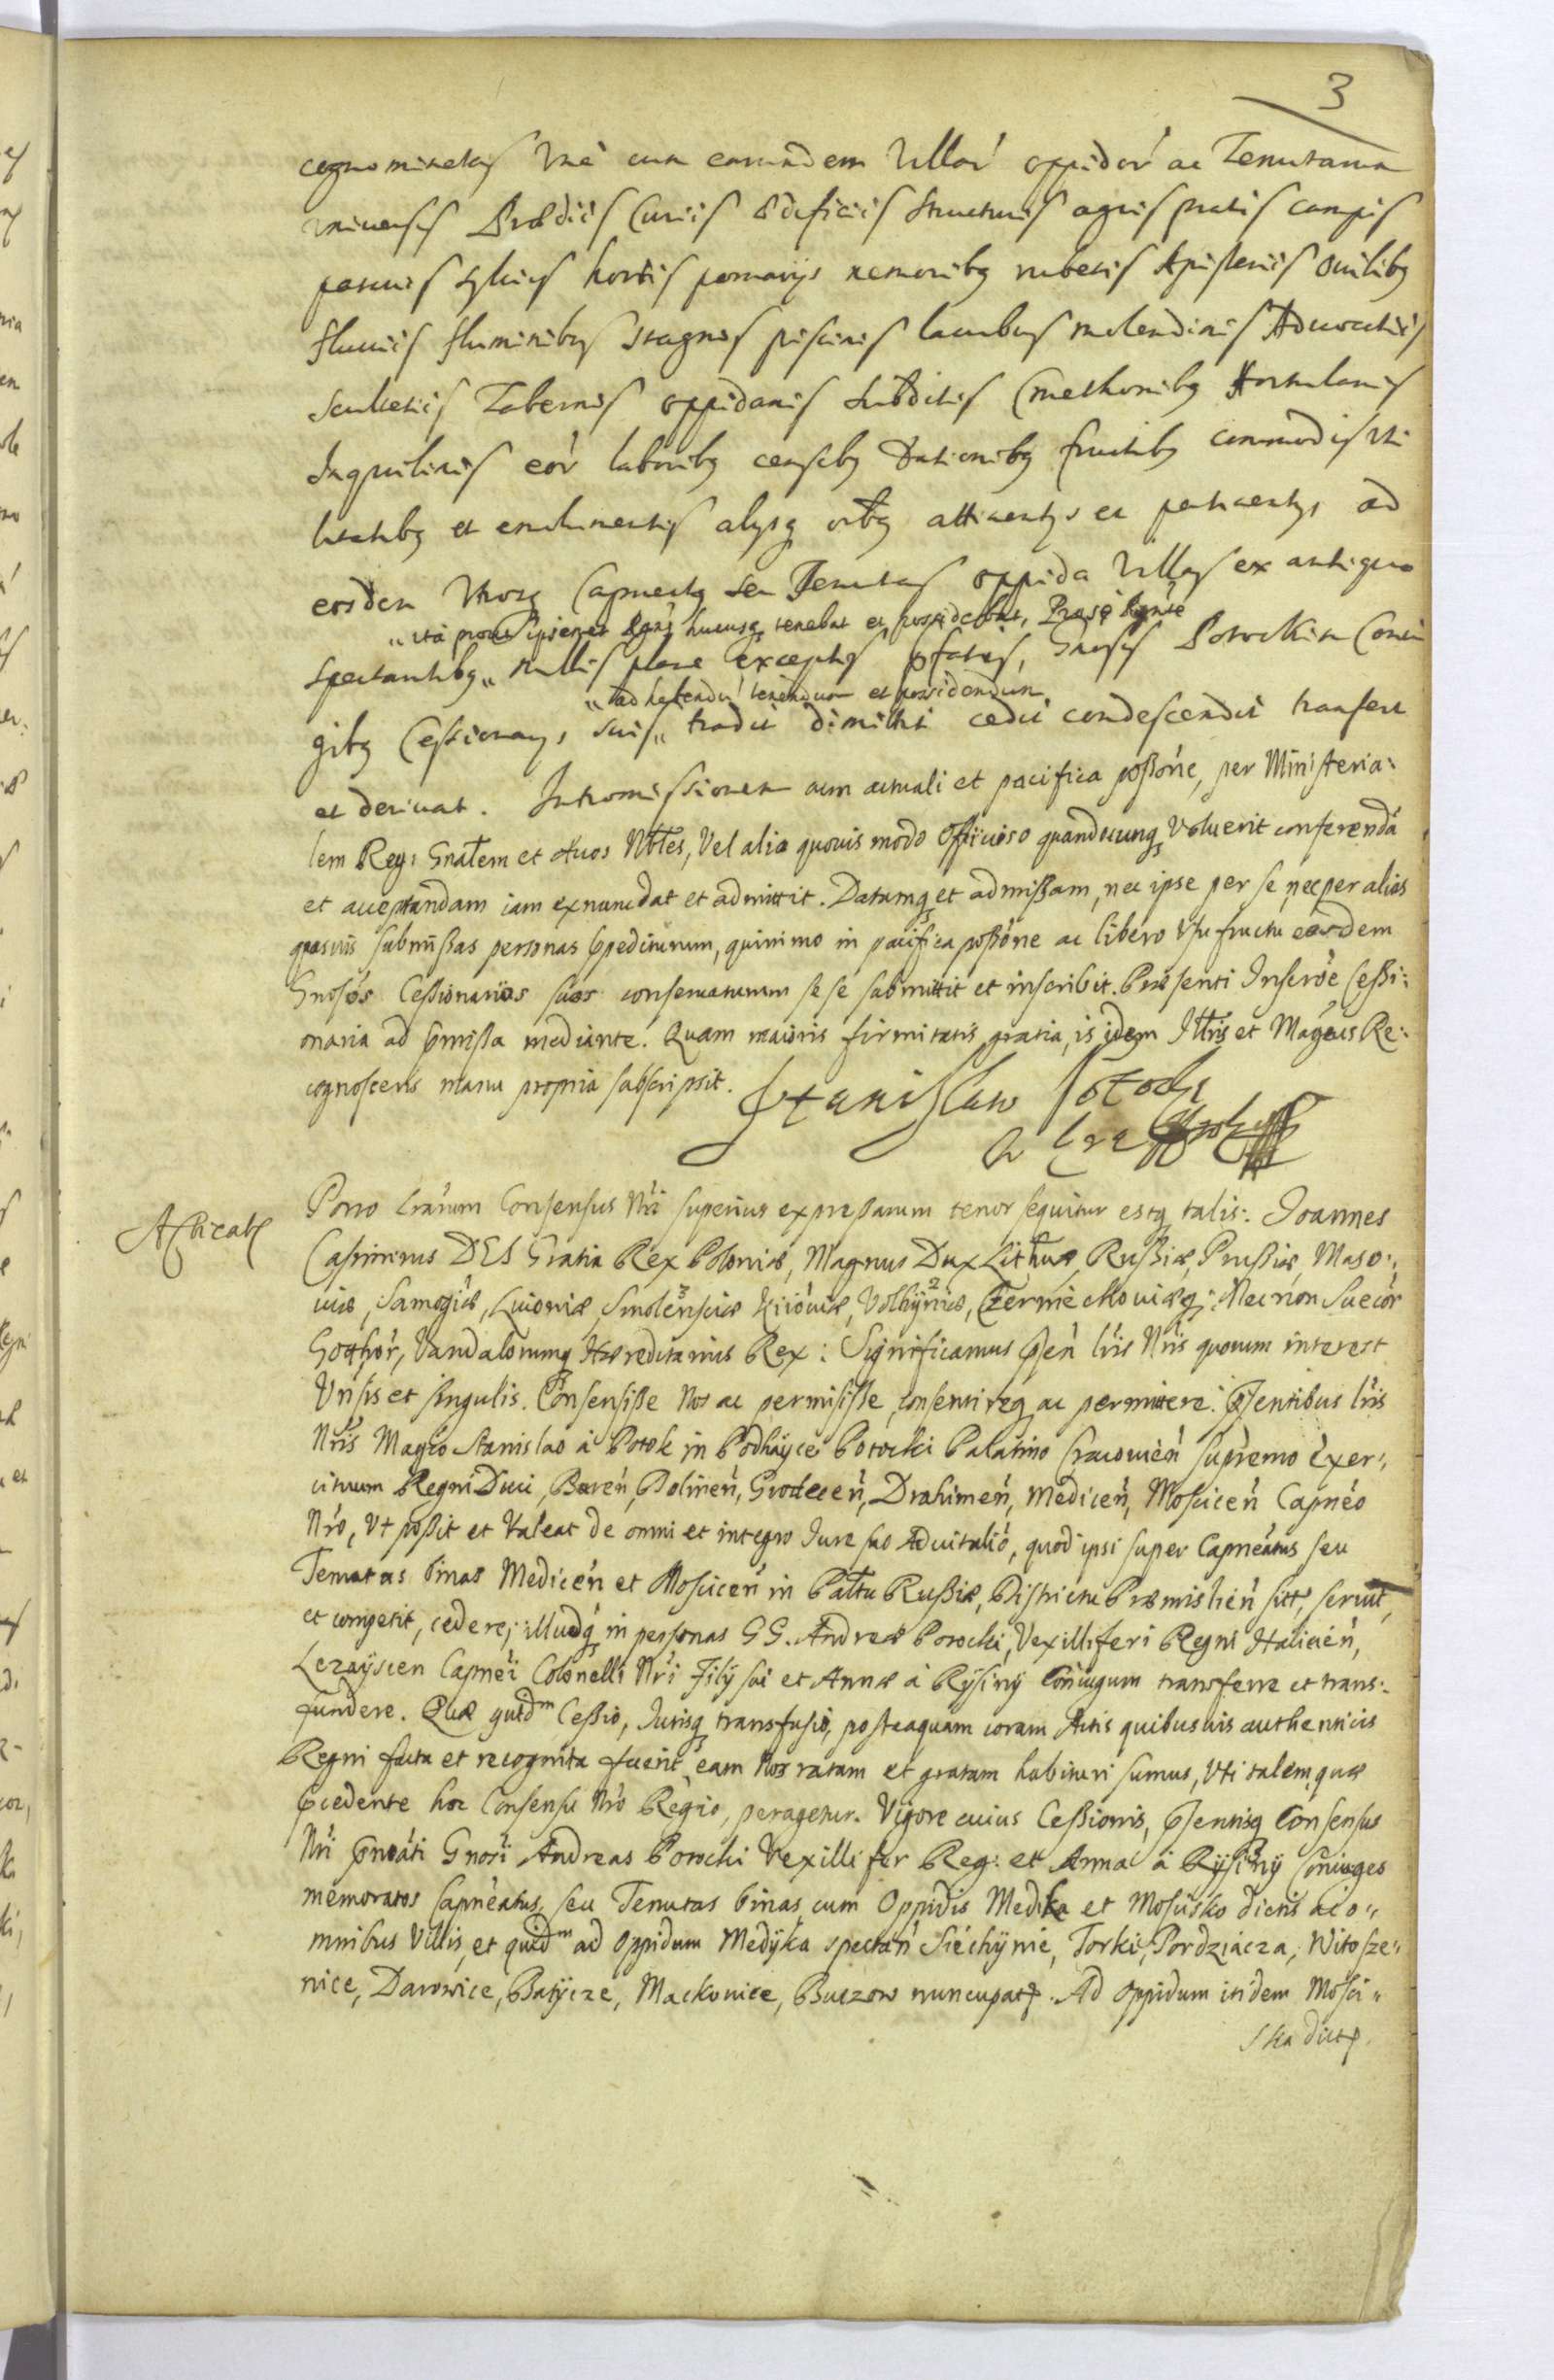 3
cognominatas Vna cum earundem Villar oppidor ac Tenutarum
vniuersis Prædiis Curiis ædificiis structuris agris pratis campis
pascuis syluis hortis pomarijs nemoribq rubetis Apisteriis ouilibq
fluuiis fluminibus stagnis piscinis lacubus molendinis Aduocatiis
Scultetiis Tabernis oppidanis subditis Cmethonibq Hortulanis
Inquilinis eor laboribq censibq Dationibq fructibq commodis vti
litatibq et emolumentis alysq oibq attinentys et pertinentys ad
eosdem Vtrosq Capneatq seu Tenutas oppida Villas ex antiquo
„ ita prout ipsemet hucusq tenebat et possidebat,
spectantibq „ nullis plane exceptis pfatis, Gnosis Potockim Coniu
„ ad habendu tenendum et possidendum
gibq Cessionarys suis „ tradit dimittit cedit condescendit transfert
et deriuat. Intromissionem cum actuali et pacifica poßone, per Ministeria:
lem Regi Gnalem et duos Nbles, Vel alio quouis modo officioso quandocunq Voluerit conferenda
et acceptandam iam exnunc dat et admittit. Datamq et admißam, nec ipse per se, nec per alias
quasuis submißas personas pediturum, quinimo in pacifica poßone ac libero Vsufructu eosdem
Gnosos Ceßionarios suos conseruaturum se se submittit et inscribit. Præsenti Inscroe Ceßi:
onaria ad pmißa mediante. Quam maioris firmitatis gratia, is idem Illtris et Magcus Re:
cognoscens manu propria subscripsit.
Stanislaw Potocki
Porro Lrarum Consensus Nri superius expreßarum tenor sequitur estq talis: Joannes
Casimirus DEI Gratia Rex Poloniæ, Magnus Dux Lithuæ, Rußiæ, Prußiæ, Maso:,
uiæ, Samogiæ, Liuoniæ, Smolensciæ 3 Kiiouiæ, Volhyniæ 2, Czerniechouiæq; Necnon Suecor
Gothor, Vandalorumq Hæreditarius Rex: Significamus psen lris Nris quorum interest
Vnsis et singulis. Consensiße Nos ac permisiße, consentireq ac permittere. psentibus lris
Nris Magco Stanislao à Potok in Podhayce Potocki Palatino Cracouien supremo Exer:,
cituum Regni Duci, Baren, Bolinen, Grodecen, Drahimen, Medicen, Moscicen Capneo
Nro, Vt poßit et Valeat de omni et integro Iure suo Aduitalio, quod ipsi super Capneatus seu
Tenutas binas Medicen et Moscicen in Palttu Rußiæ, Districtu Præmislien sitt, seruit,
et competit, cedere; illudq in personas GG. Andreæ Potocki, Vexilliferi Regni Halicien,
Lezayscen Capnei Colonelli Nri Filij sui et Annæ à Rysiny Coniugum transferre et trans:
fundere. Quæ quidm Ceßio, Iurisq transfusio, posteaquam coram Actis quibusuis authenticis
Regni facta et recognita fuerit eam Nos ratam et gratam habituri sumus, Vti talem, quæ
pcedente hoc Consensu Nro Regio, peragetur. Vigore cuius Ceßionis, psentisq Consensus
Nri pnoati Gnosi Andreas Potocki Vexillifer Reg: et Anna à Rysiny Coniuges
memoratos Capneatus, seu Tenutas binas, cum Oppidis Medika et Mosciska dictis ac o„
mnibus Villis, et quidm ad Oppidum Medyka spectan Siechynie, Torki, Pordziacza, Witosze„
nice, Darowice, Batycze, Mackowice, Buczow nuncupatt. Ad Oppidum itidem Mosci„
ska dictt